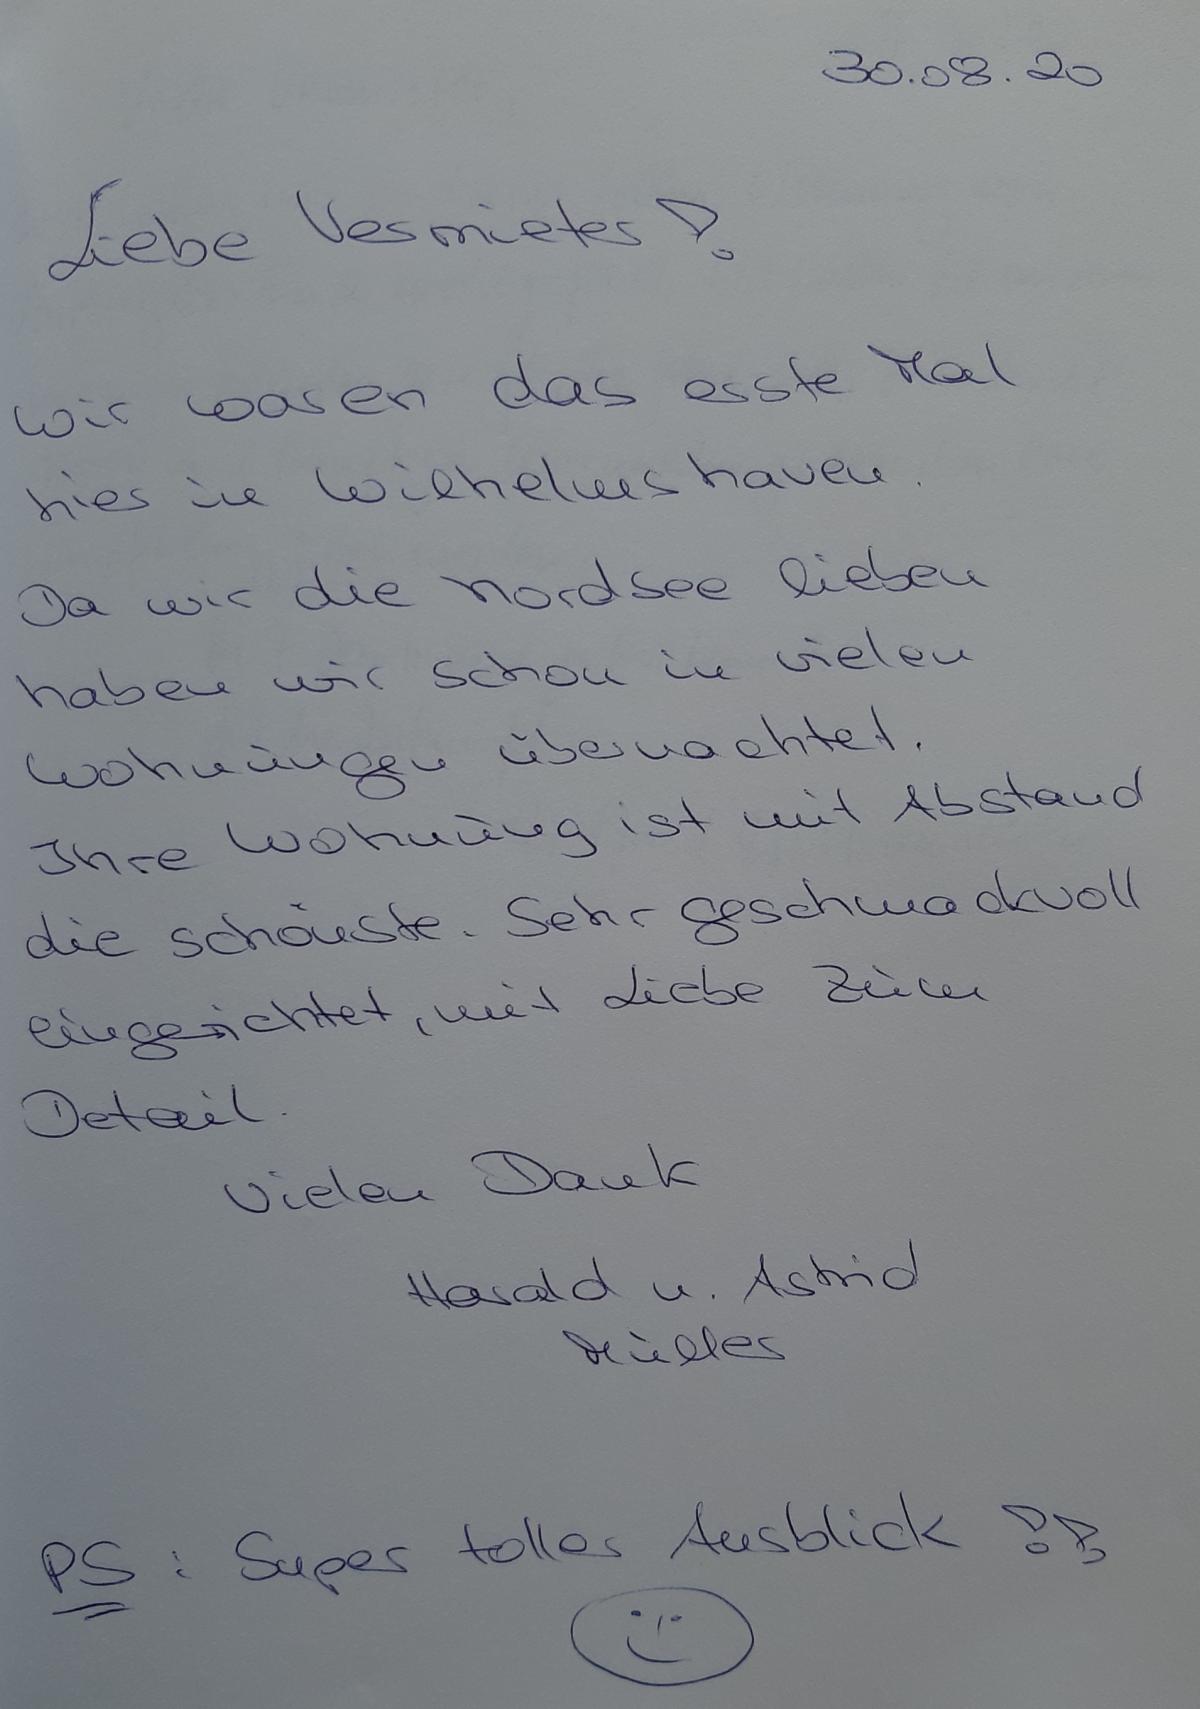 30.08.20
Liebe Vermieter!
wir waren das erste Mal
hier in Wilhelmshaven.
Da wir die Nordsee lieben
haben wir schon in vielen
Wohnungen übernachtet.
Ihre Wohnung ist mit Abstand
die schönste. Sehr geschmackvoll
eingerichtet, mit Liebe zum
Detail.
Vielen Dank
Harald u. Astrid
Müller
PS: Super toller Ausblick !!